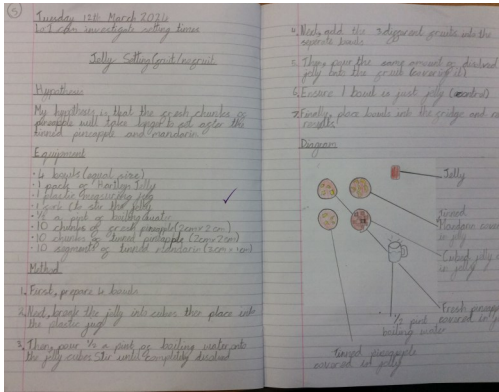 5
Tuesday 12th March 2024
L.I can investigate setting times
Jelly Setting
Hypothesis
My hypothesis is that the fresh chunks of
pineapple will take longer to set after the
tinned pineapple and mandarin
Equipment
· bowls (equal size)
· 1 pack of Hartleys Jelly
· 1 plastic measuring jug
· 1 (to stir the jelly)
· 1/2 a pint of boiling water
· 10 chunks of fresh pineapple (2cm x 2cm)
· 10 chunks of tinned pineapple (2cm x 2cm)
· 10 segments of tinned mandarin
Method
1. First, prepare bowls
2. Next, break the jelly into cubes then place into
the plastic jug
3. Then, pour 1/2 a pint of boiling water onto
the jelly cubes. Stir until completely disolved
4. Next, add the different fruits into the
separate bowls
5. Then pour the same amount of disolved
jelly onto the fruit
6. Ensure 1 bowl is just jelly (control)
7. Finally, place bowls into the fridge and
results!
Diagram
Jelly
tinned
in jelly
Cubed jelly
in jelly
Fresh
covered in
1/2 pint
boiling water
tinned pineapple
covered in jelly